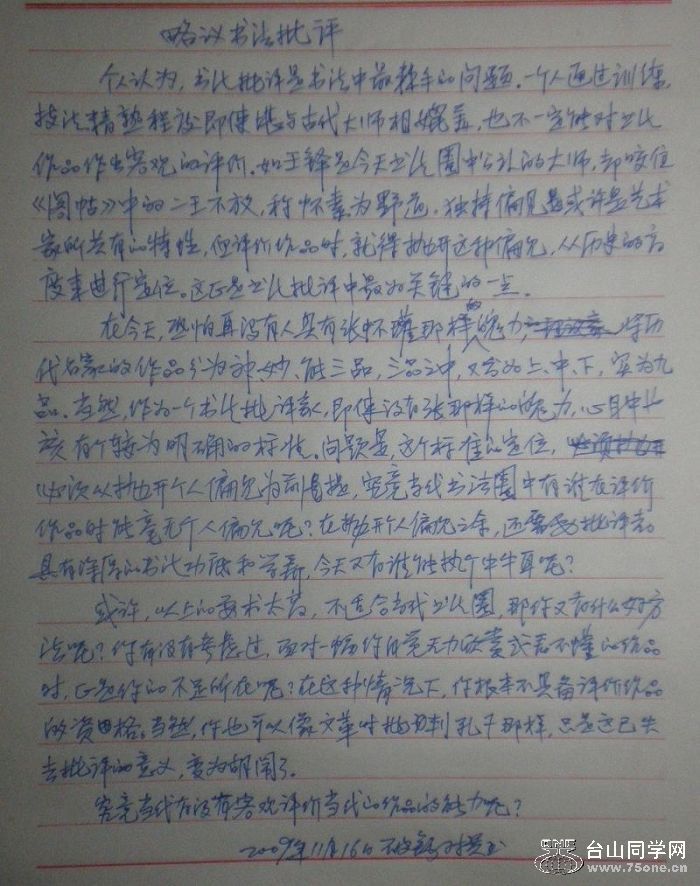 略议书法批评
个人认为，书法批评是书法中最棘手的问题。一个人通过训练，
技法精熟程度即使堪与古代大师相媲美，也不一定能对书法
作品作出客观的评价。如王铎是今天书法圈中公认的大师，却咬住
《阁帖》中的二王不放，称怀素为野道。独持偏见是或许是艺术
家所共有的特性，但评价作品时，就得抛开这种偏见，从历史的高
度来进行定位。这正是书法批评中最为关键的一点。
在今天，恐怕再没有人具有张怀瓘那样的魄力，将历
代名家的作品分为神、妙、能三品，三品之中，又分为上、中、下，实为九
品。当然，作为一个书法批评家，即使没有张那样的魄力，心目中也
该有个较为明确的标准。问题是，这个标准的定位，
必须以抛开个人偏见为前提，究竟当代书法圈中有谁在评价
作品时能毫无个人偏见呢？在抛开个人偏见之余，还需要批评者
具有深厚的书法功底和学养，今天又有谁能执个中牛耳呢？
或许，以上的要求太高，不适合当代书法圈，那你又有什么好方
法呢？你有没有考虑过，面对一幅你自觉无力欣赏或看不懂的作品
时，正是你的不足所在呢？在这种情况下，你根本不具备评价作品
的资格。当然，你也可以像文革时批判孔子那样，只是这已失
去批评的意义，变为胡闹了。
究竟当代有没有客观评价当代的作品的能力呢？
2009年11月16日
台山同学网
www.75one.cn